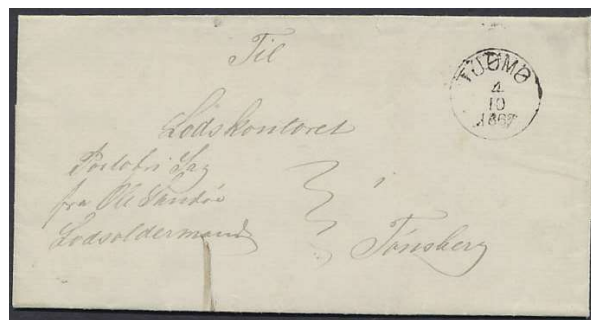 Til
TJØMØ
4
10
1867
Lodskontoret
Portofri Sag
fra Ole Sandøe
Lodsoldermand
i
Tønsberg